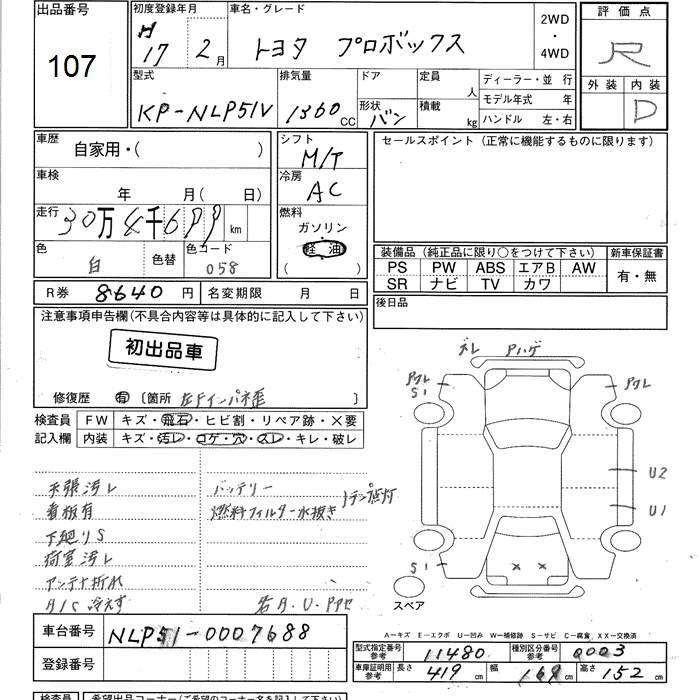 出品番号
107
初度登録年月
H17 2月
車名・グレード
トヨタ プロボックス
2WD
・
4WD
評価点
R
外装 内装
D
型式
KP-NLP51V
排気量
1360 CC
ドア
形状
バン
定員
人
積載
kg
ディーラー・並 行
モデル年式 年
ハンドル 左・右
車歴
自家用・( )
車検
年 月( 日)
走行
30万4千6 km
色
白
色替
色コード
058
シフト
M/T
冷房
AC
燃料
ガソリン
軽 油
( )
セールスポイント (正常に機能するものに限ります)
装備品 (純正品に限り○をつけて下さい)
PS PW ABS エアB AW
SR ナビ TV カワ
新車保証書
有・無
後日品
R券 8640 円
名変期限 月 日
注意事項申告欄(不具合内容等は具体的に記入して下さい)
初出品車
修復歴 有 〔箇所 左Fインパネ歪
検査員
記入欄
FW キズ・飛石・ヒビ割・リペア跡・×要
内装 キズ・汚レ・コゲ・穴・スレ・キレ・破レ
天張汚レ
看板有
下廻りS
荷室汚レ
アンテナ折れ
A/C 冷えず
バッテリー
燃料フィルター水抜き
ランプ点灯
ズレ Pハゲ
S1
U2
U1
S1
× ×
スペア
A-キズ E-エクボ U-凹み W-補修跡 S-サビ C-腐食 XX-交換済
車台番号
NLP51-0007688
登録番号
型式指定番号
参考
11480
種別区分番号
参考
0003
車庫証明用
参考
長さ 419 cm
幅 169 cm
高さ 152 cm
検査員
希望出品コーナー(ご希望のコーナー名を記入下さい)